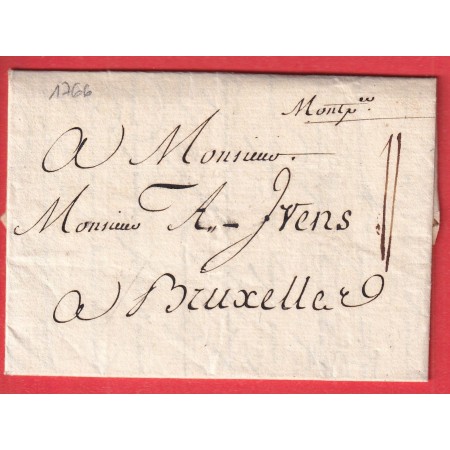 1766
Montp.er
A Monsieur.
Monsieur A,,- Jvens
a Bruxelles